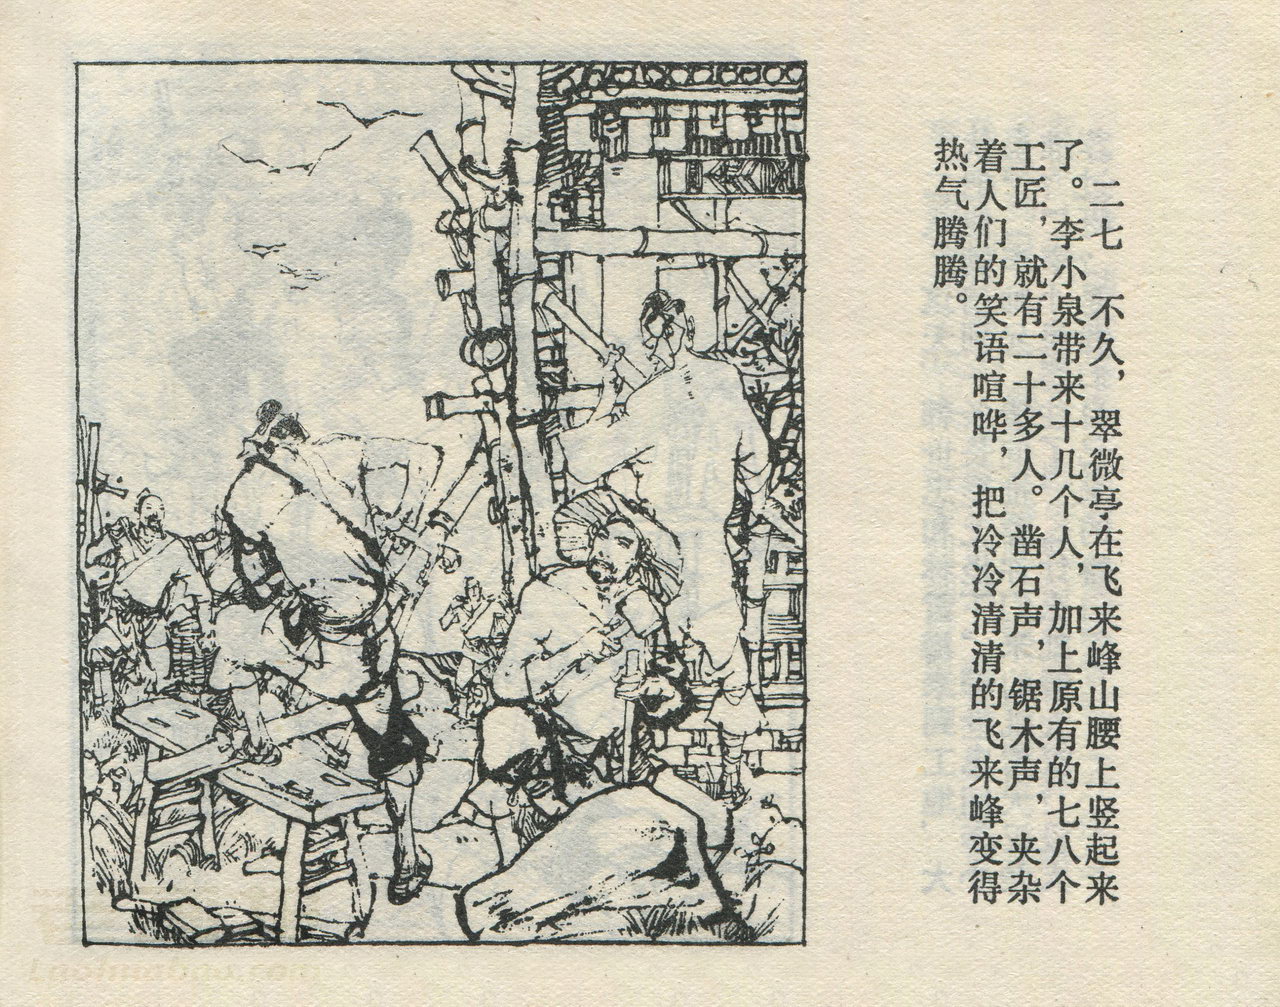 二七 不久，翠微亭在飞来峰山腰上竖起来
了。李小泉带来十几个人，加上原有的七八个
工匠，就有二十多人。凿石声，锯木声，夹杂
着人们的笑语喧哗，把冷冷清清的飞来峰变得
热气腾腾。